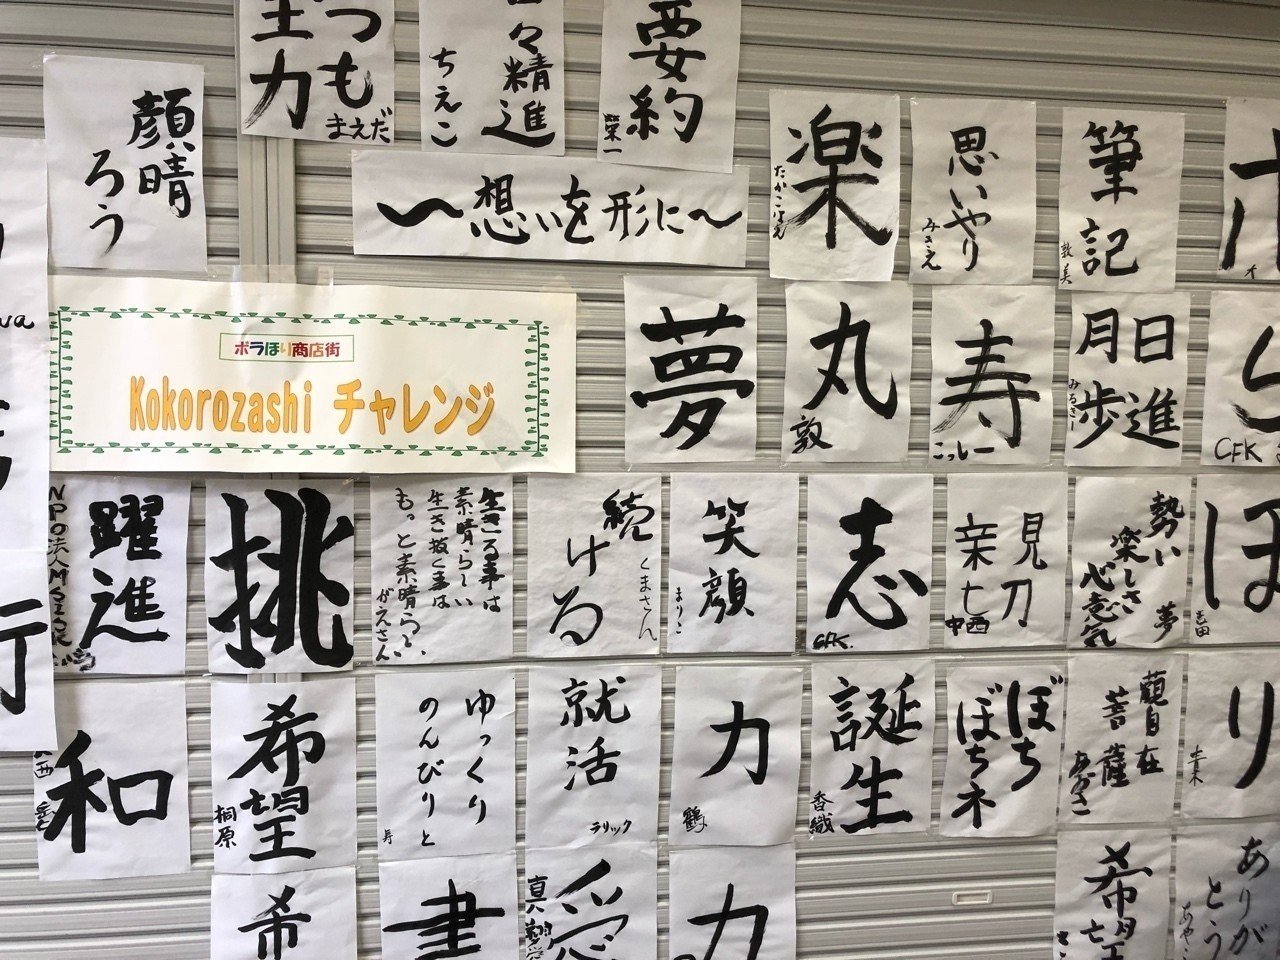 つも
力
まえだ
々精進
ちえこ
要約
栄一
顔晴
ろう
〜想いを形に〜
楽
思いやり
みさえ
筆記
敦美
ボラほり商店街
Kokorozashi チャレンジ
夢
丸
敦
寿
こっしー
日進
月歩
みるきー
CFK
躍進
挑
生きる事は
素晴らしい
生き抜く事は
もっと素晴らしい
がえさん
続ける
くまさん
笑顔
まりこ
志
CFK.
見刀
中西
勢い 夢
楽しさ
心意気
ほ
吉田
行
和
希望
桐原
ゆっくり
のんびりと
寿
就活
ラリック
力
鶴
誕生
香織
ぼち
ぼちネ
観自在
菩薩
り
青木
希
書
力
希望
ありが
とう